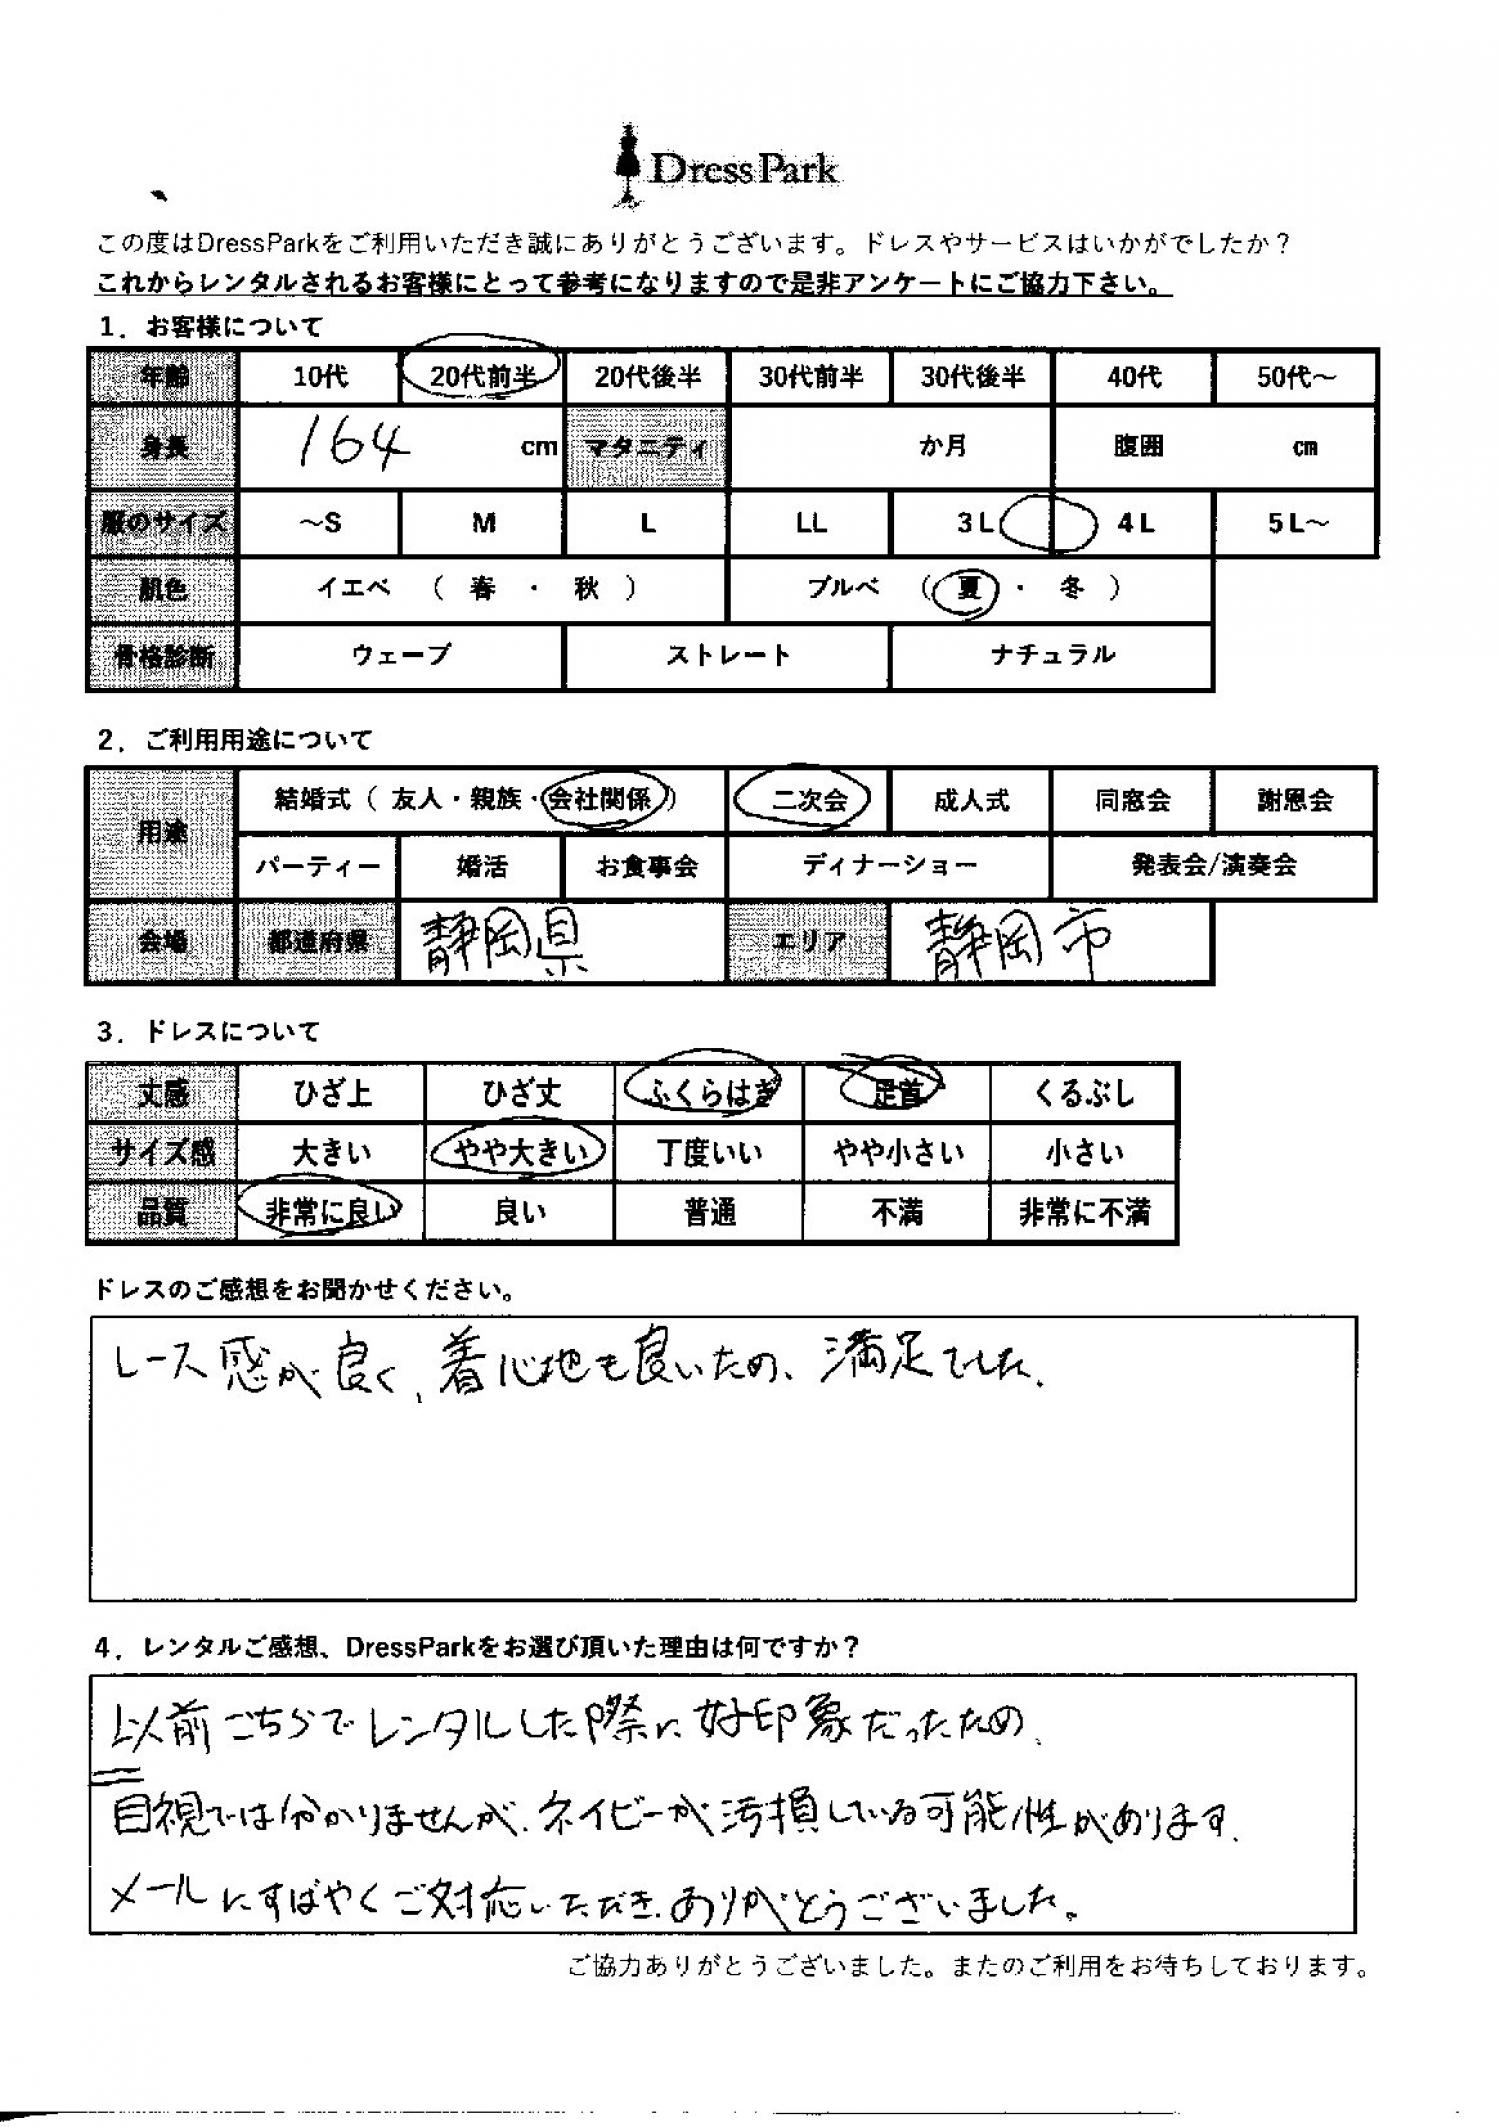 DressPark
この度はDressParkをご利用いただき誠にありがとうございます。ドレスやサービスはいかがでしたか？
これからレンタルされるお客様にとって参考になりますので是非アンケートにご協力下さい。
1．お客様について
年齢 10代 20代前半 20代後半 30代前半 30代後半 40代 50代～
身長 164 cm マタニティ か月 腹囲 cm
服のサイズ ～S M L LL 3L 4L 5L～
肌色 イエベ （ 春 ・ 秋 ） ブルベ （ 夏 ・ 冬 ）
骨格診断 ウェーブ ストレート ナチュラル
2．ご利用用途について
用途 結婚式（ 友人・親族・会社関係 ） 二次会 成人式 同窓会 謝恩会
パーティー 婚活 お食事会 ディナーショー 発表会/演奏会
会場 都道府県 静岡県 エリア 静岡市
3．ドレスについて
丈感 ひざ上 ひざ丈 ふくらはぎ 足首 くるぶし
サイズ感 大きい やや大きい 丁度いい やや小さい 小さい
品質 非常に良い 良い 普通 不満 非常に不満
ドレスのご感想をお聞かせください。
レース感が良く、着心地も良いため、満足でした。
4．レンタルご感想、DressParkをお選び頂いた理由は何ですか？
以前こちらでレンタルした際に好印象だったため、
目視では分かりませんが、ネイビーが汚損している可能性があります。
メールにすばやくご対応いただき、ありがとうございました。
ご協力ありがとうございました。またのご利用をお待ちしております。